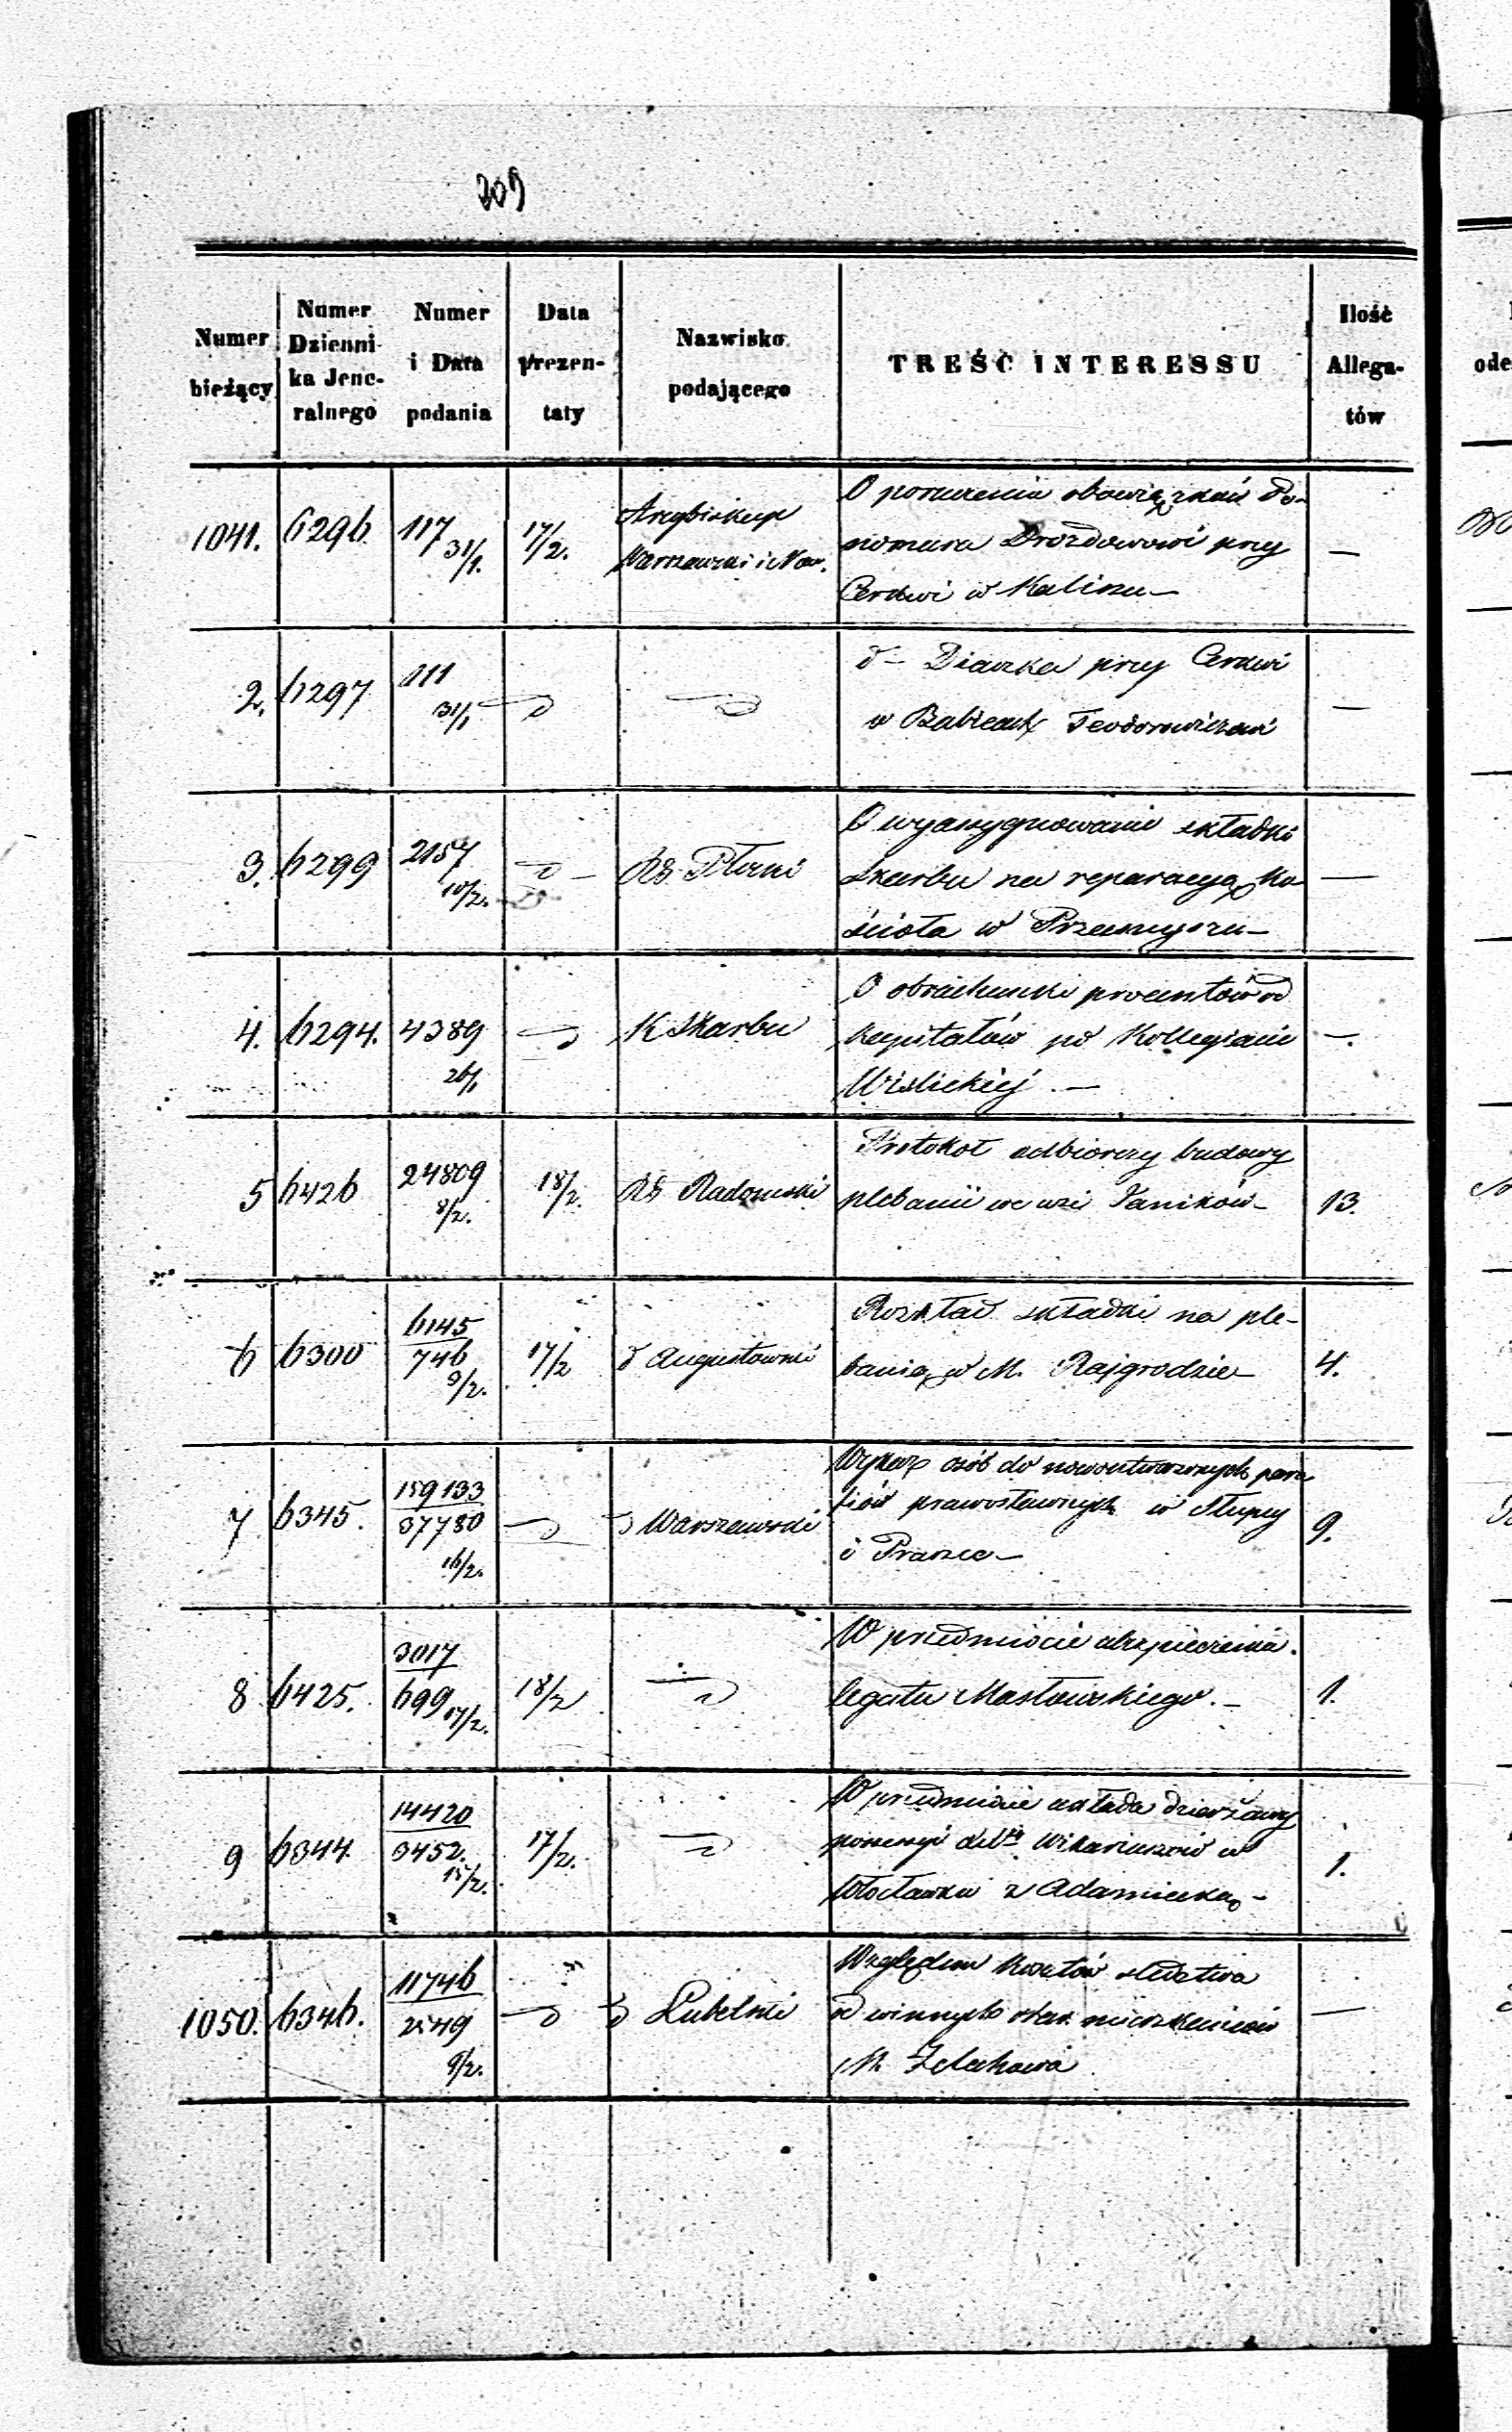 209
Numer bieżący
Numer Dzienni- ka Jene- ralnego
Numer i Data podania
Data prezen- taty
Nazwisko podającego
TREŚĆ INTERESSU
Ilość Allega- tów
1041. 6296 117 31/1. 17/2. Arcybiskup Warszawski i Now. —
O poruczeniu obowiązków Po-
nomara Drozdowowi przy
Cerkwi w Kaliszu —
2. 6297 111 31/1 —
d — Diaczka przy Cerkwi
w Babicach Teodorowiczowi
3. 6299 2157 10/2. RG. Płocki —
O wyassygnowanie składki
Skarbu na reparacyą ko-
ścioła w
4. 6294. 4389 26/1 K Skarbu —.
O obrachunki procentów od
kapitałów po Kollegiacie
Wiślickiej. —
5 6426 24809 8/2. 18/2. RG Radomski 13.
Protokół odbiorczy budowy
plebanii we wsi Janików —
6 6300 6145 746 9/2. 17/2 d Augustowski 4.
Rozkład składki na ple-
banią w M. Rajgrodzie —
7 6345. 159133 37780 16/2. d Warszawski 9.
Wykaz osób do nowoutworzonych para
fiów prawosławnych w Słupcy
i Praszce —
8 6425. 3017 699 17/2. 18/2 1.
W przedmiocie ubezpieczenia
legatu Masłowskiego. —
9 6344 14420 3452. 15/2. 17/2. 1.
W przedmiocie układu dzierżawy
possessyi Wikariuszów w
Włocławku z Adamiecką —
1050. 6346. 11746 2549 9/2. d Lubelski —
Względem kosztów śledztwa
od winnych mieszkańców
M. Żelechowa